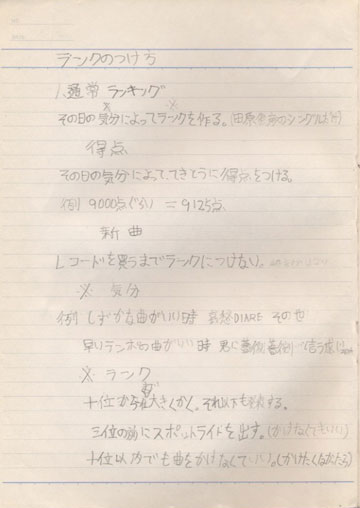 ランクのつけ方
1.通常ランキング
その日の気分によってランクを作る。(田原のシングルは
得点
その日の気分によって、てきとうに得点をつける。
例 9000点ぐらい = 9125点
新曲
レコードを買うまでランクにつけない。
※ 気分
例 しずかな曲がいい時 哀愁DIARE その他
早いテンポの曲がいい時 男に
※ ランク
十位から大きくかく。それ以下も発表する。
三位の前にスポットライトを出す。(かけなくてもいい)
十位以内でも曲をかけなくていい。(かけたくなかったら)